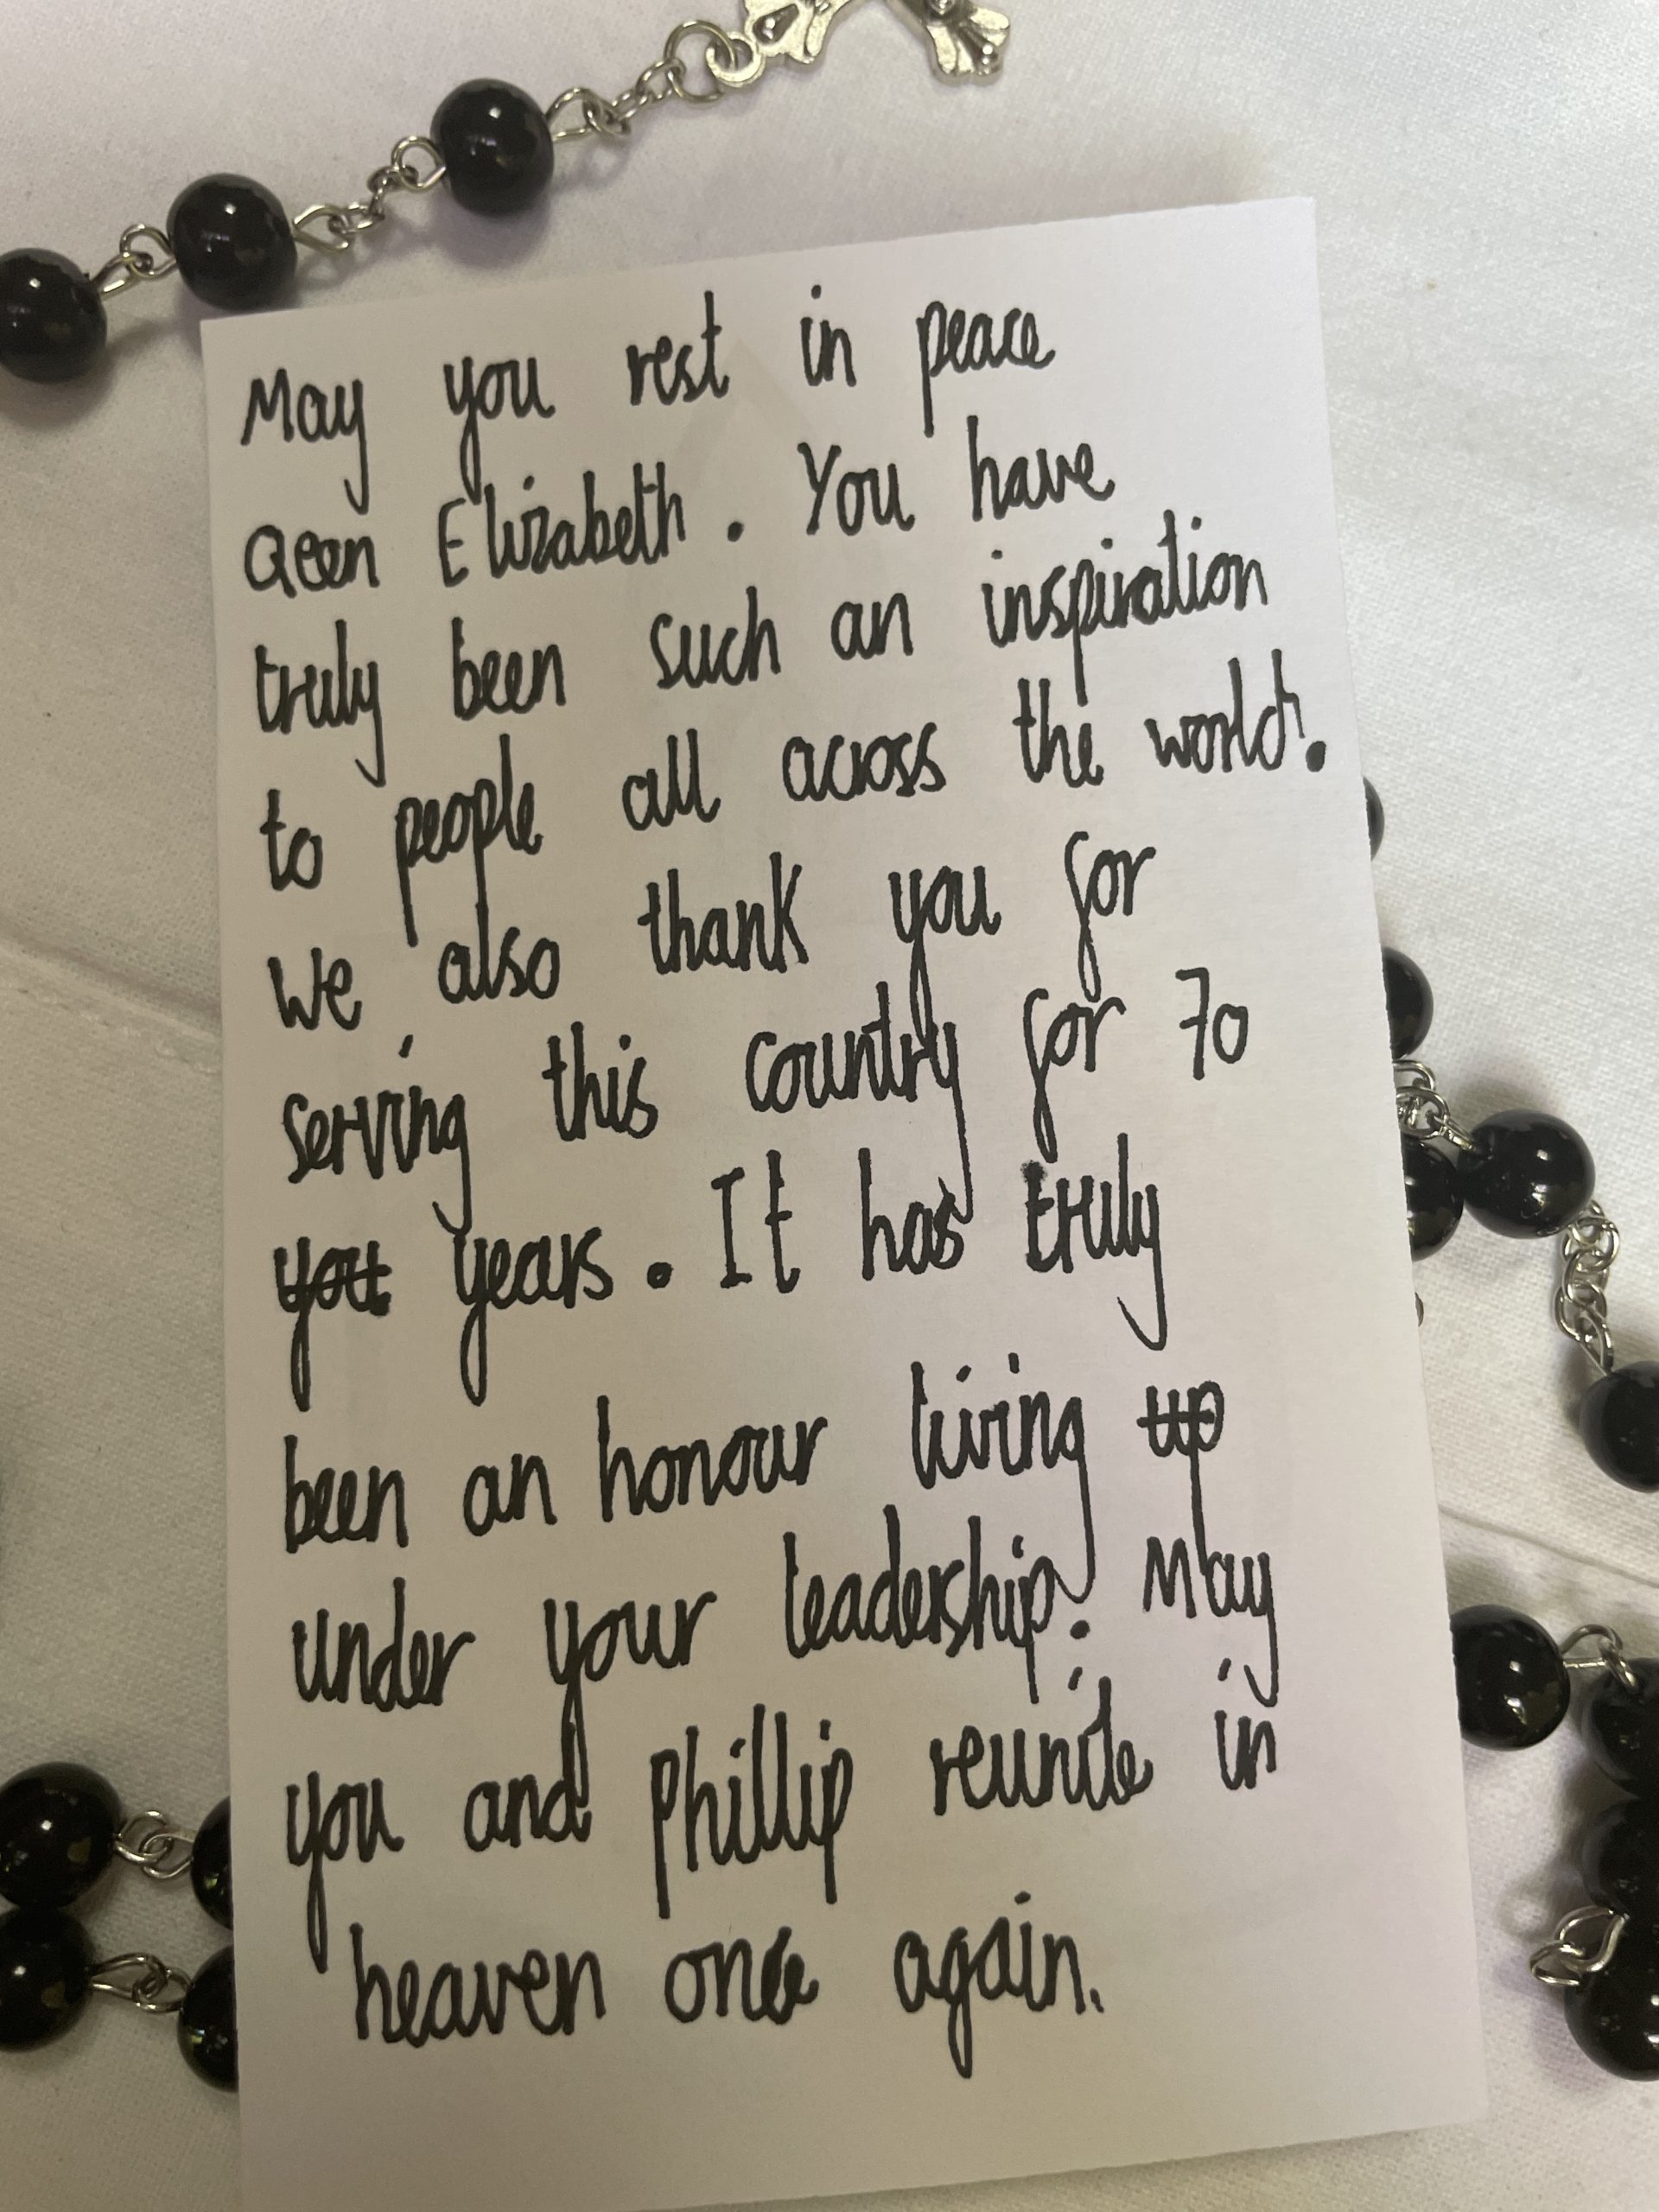 May you rest in peace
Qeen Elizabeth. You have
truly been such an inspiration
to people all across the world.
We also thank you for
serving this country for 70
you years. It has truly
been an honour living up
under your leadership. May
you and Phillip reunite in
heaven once again.